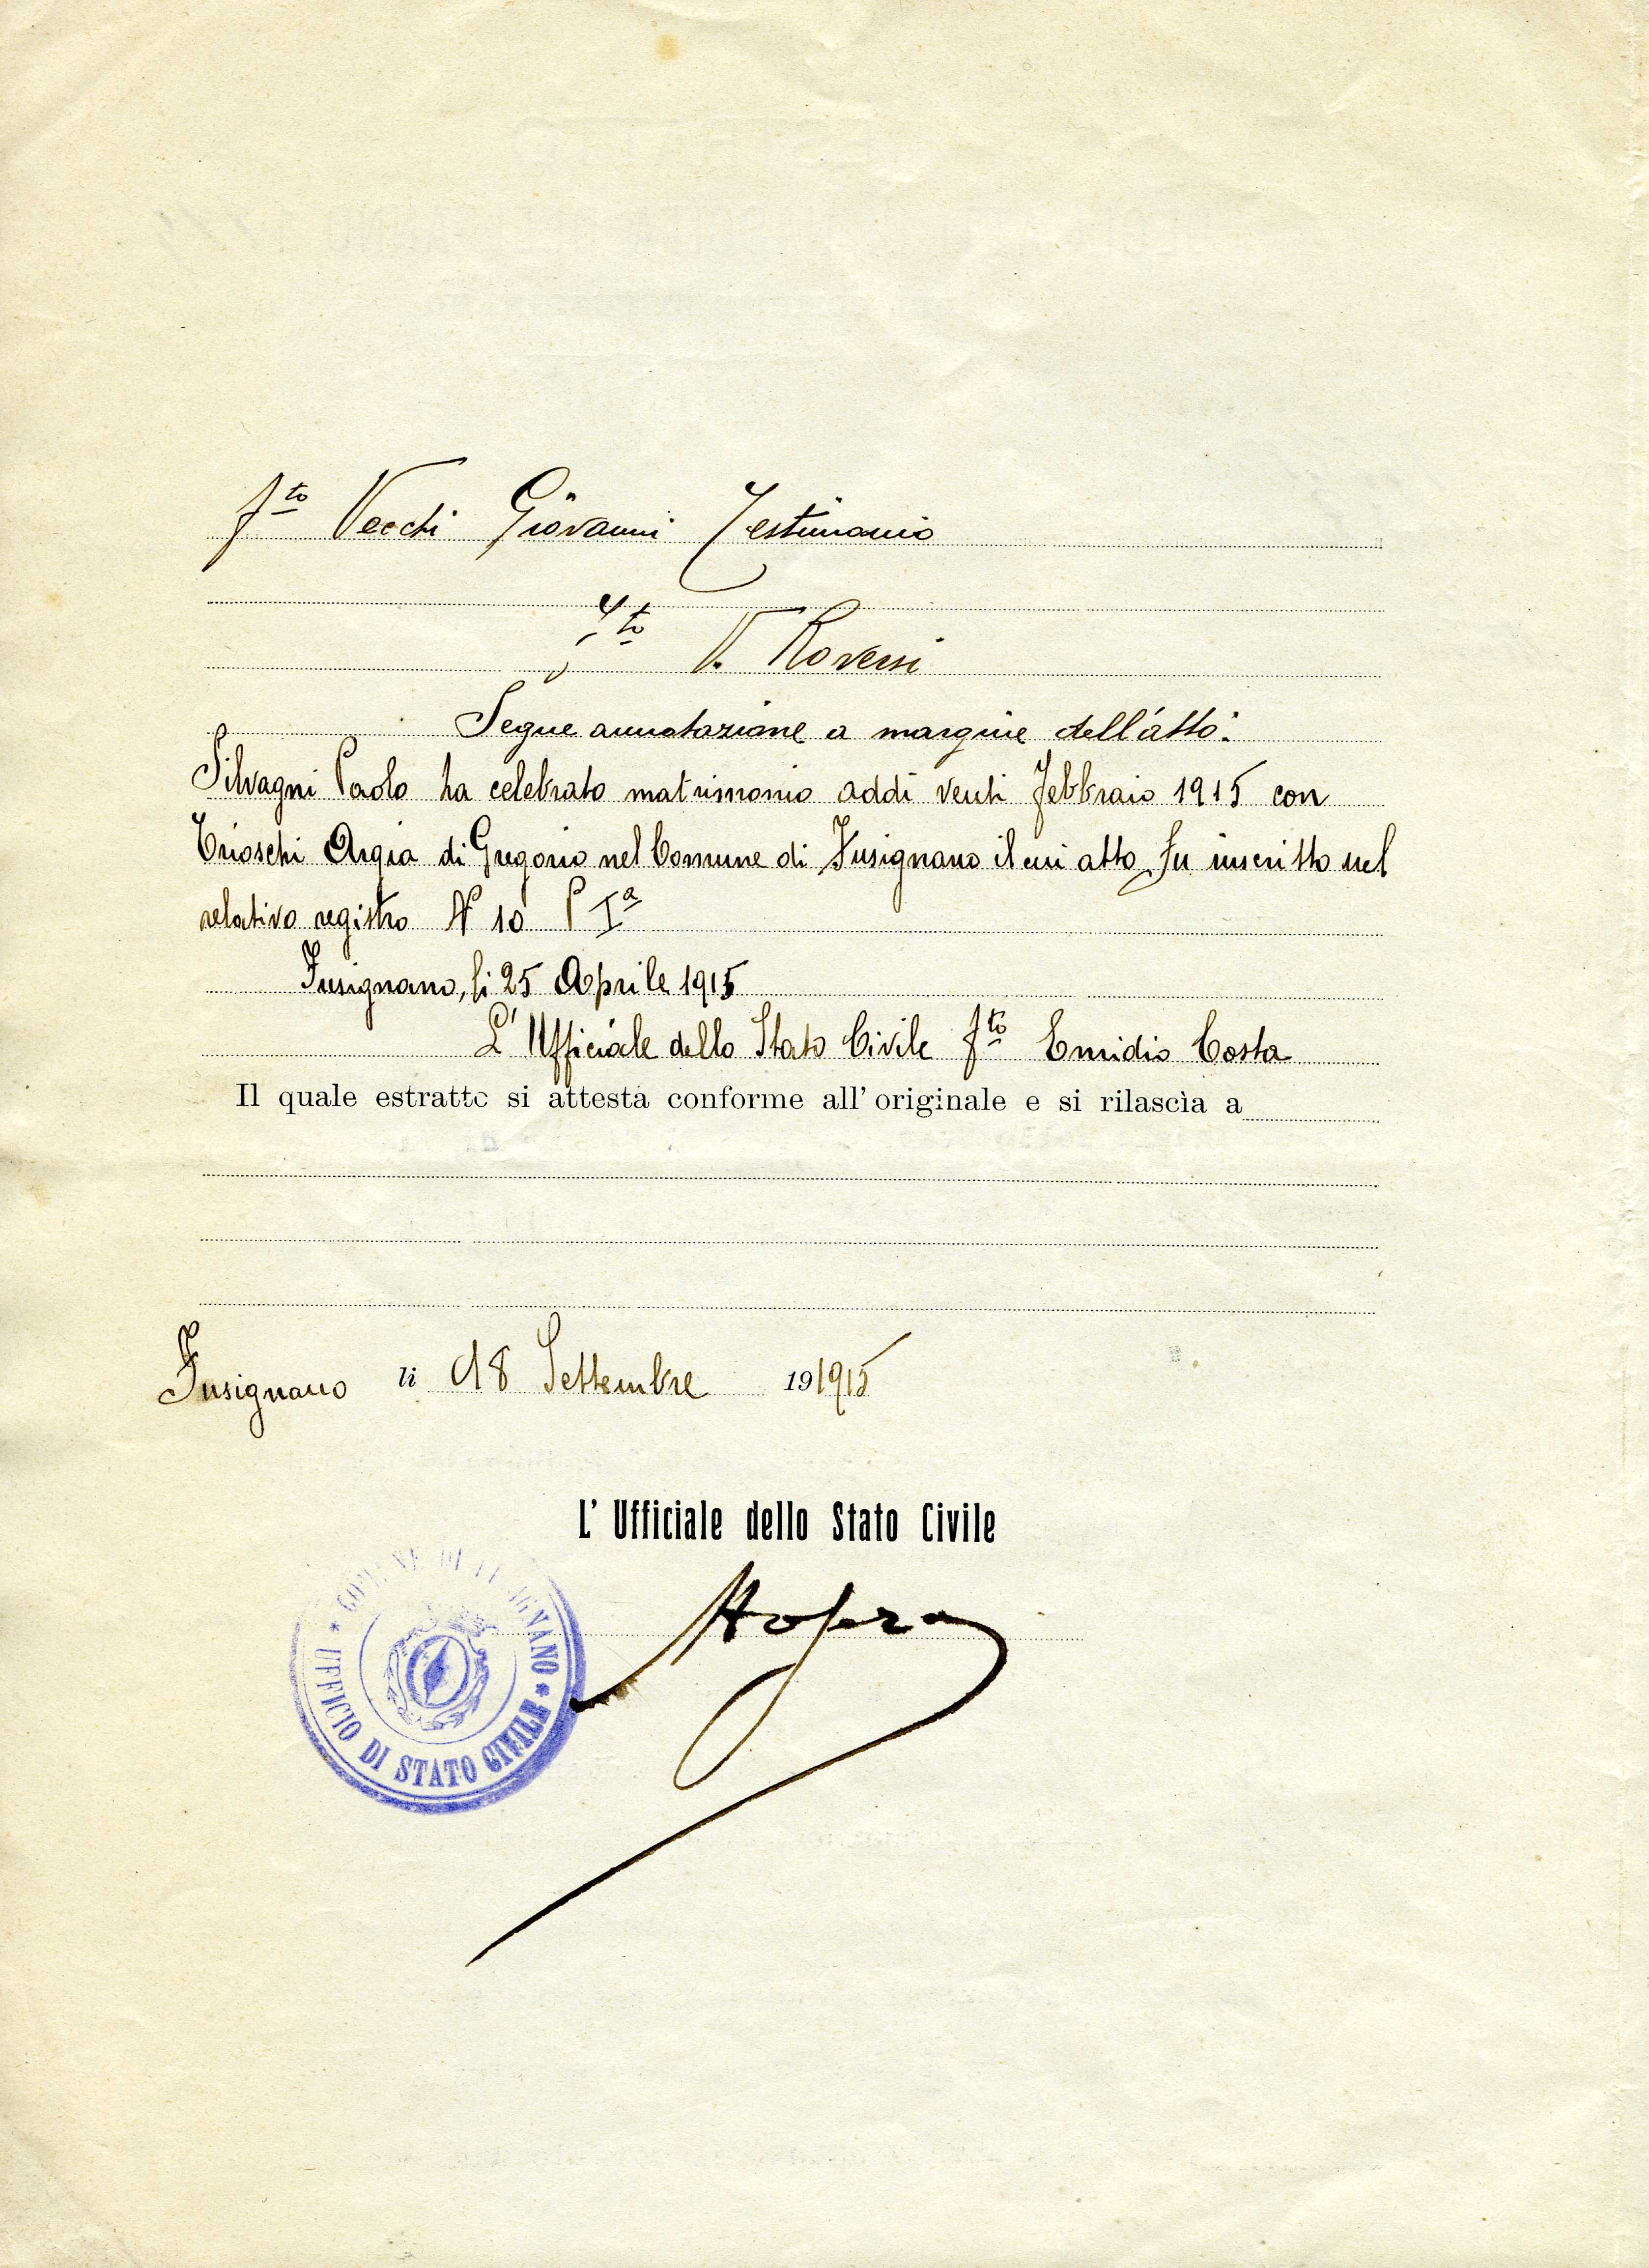 fto Vecchi Giovanni Testimonio
fto V. Roversi
Segue annotazione a margine dell'atto:
Silvagni Paolo ha celebrato matrimonio addì venti febbraio 1915 con
Trioschi Argia di Gregorio nel Comune di Fusignano il cui atto fu inscritto nel
relativo registro N 10 P Iª
Fusignano, li 25 Aprile 1915
L'Ufficiale dello Stato Civile fto Emidio Costa
Il quale estratto si attesta conforme all' originale e si rilascia a
Fusignano li 18 Settembre 191915
L' Ufficiale dello Stato Civile
* COMUNE DI FUSIGNANO * UFFICIO DI STATO CIVILE